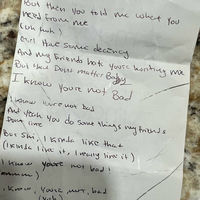 But then you told me what you
need from me
(uh huh)
Girl Have some decency
And my Friends hate you're hurting me
But that Don't matter Baby
I know you're not Bad
I know you're not bad
And yeah you do some things my friends
Don't like
But Shi, I kinda like that
(I kinda like it, I really like it)
I know you're not bad
I know, you're not, bad
(yeah)